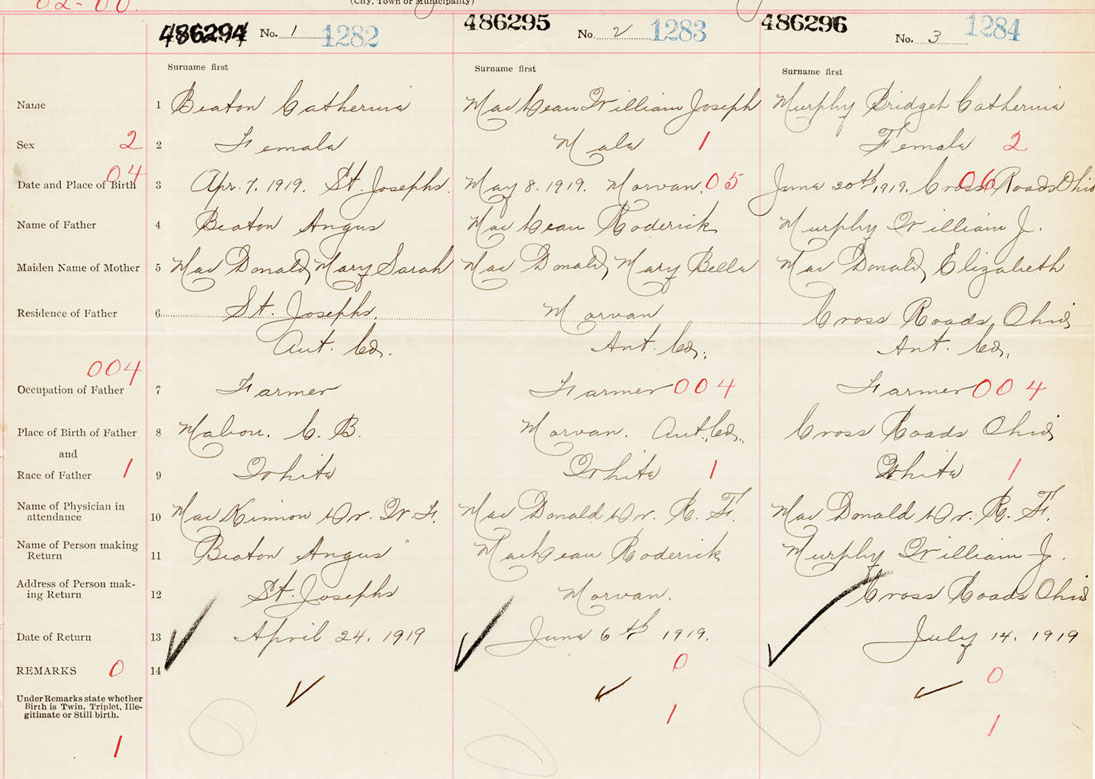 02-00.
(City, Town or Municipality)
486294 No. 1 1282 486295 No. 2 1283 486296 No. 3 1284
Surname first Surname first Surname first
Name 1 Beaton Catherine MacLean William Joseph Murphy Bridget Catherine
Sex 2 2 Female Male 1 Female 2
04
Date and Place of Birth 3 Apr. 7. 1919. St. Josephs. May 8. 1919. Morvan. 05 June 20th, 1919. Cross Roads Ohio 06
Name of Father 4 Beaton Angus MacLean Roderick Murphy William J.
Maiden Name of Mother 5 MacDonald, Mary Sarah MacDonald, Mary Bella MacDonald, Elizabeth
Residence of Father 6 St. Josephs. Morvan Cross Roads, Ohio,
Ant. Co. Ant. Co., Ant. Co.,
004
Occupation of Father 7 Farmer Farmer 004 Farmer 004
Place of Birth of Father 8 Mabou. C. B. Morvan. Ant. Co., Cross Roads Ohio,
and
Race of Father 1 9 White White 1 White 1
Name of Physician in
attendance 10 MacKinnon Dr. W. F. MacDonald Dr. R. F. MacDonald Dr. R. F.
Name of Person making
Return 11 Beaton Angus MacLean Roderick Murphy William J.
Address of Person mak-
ing Return 12 St. Josephs Morvan. Cross Roads Ohio
Date of Return 13 April 24. 1919 June 6th 1919. July 14. 1919
REMARKS 0 14 0 0
Under Remarks state whether
Birth is Twin, Triplet, Ille-
gitimate or Still birth.
1 1 1